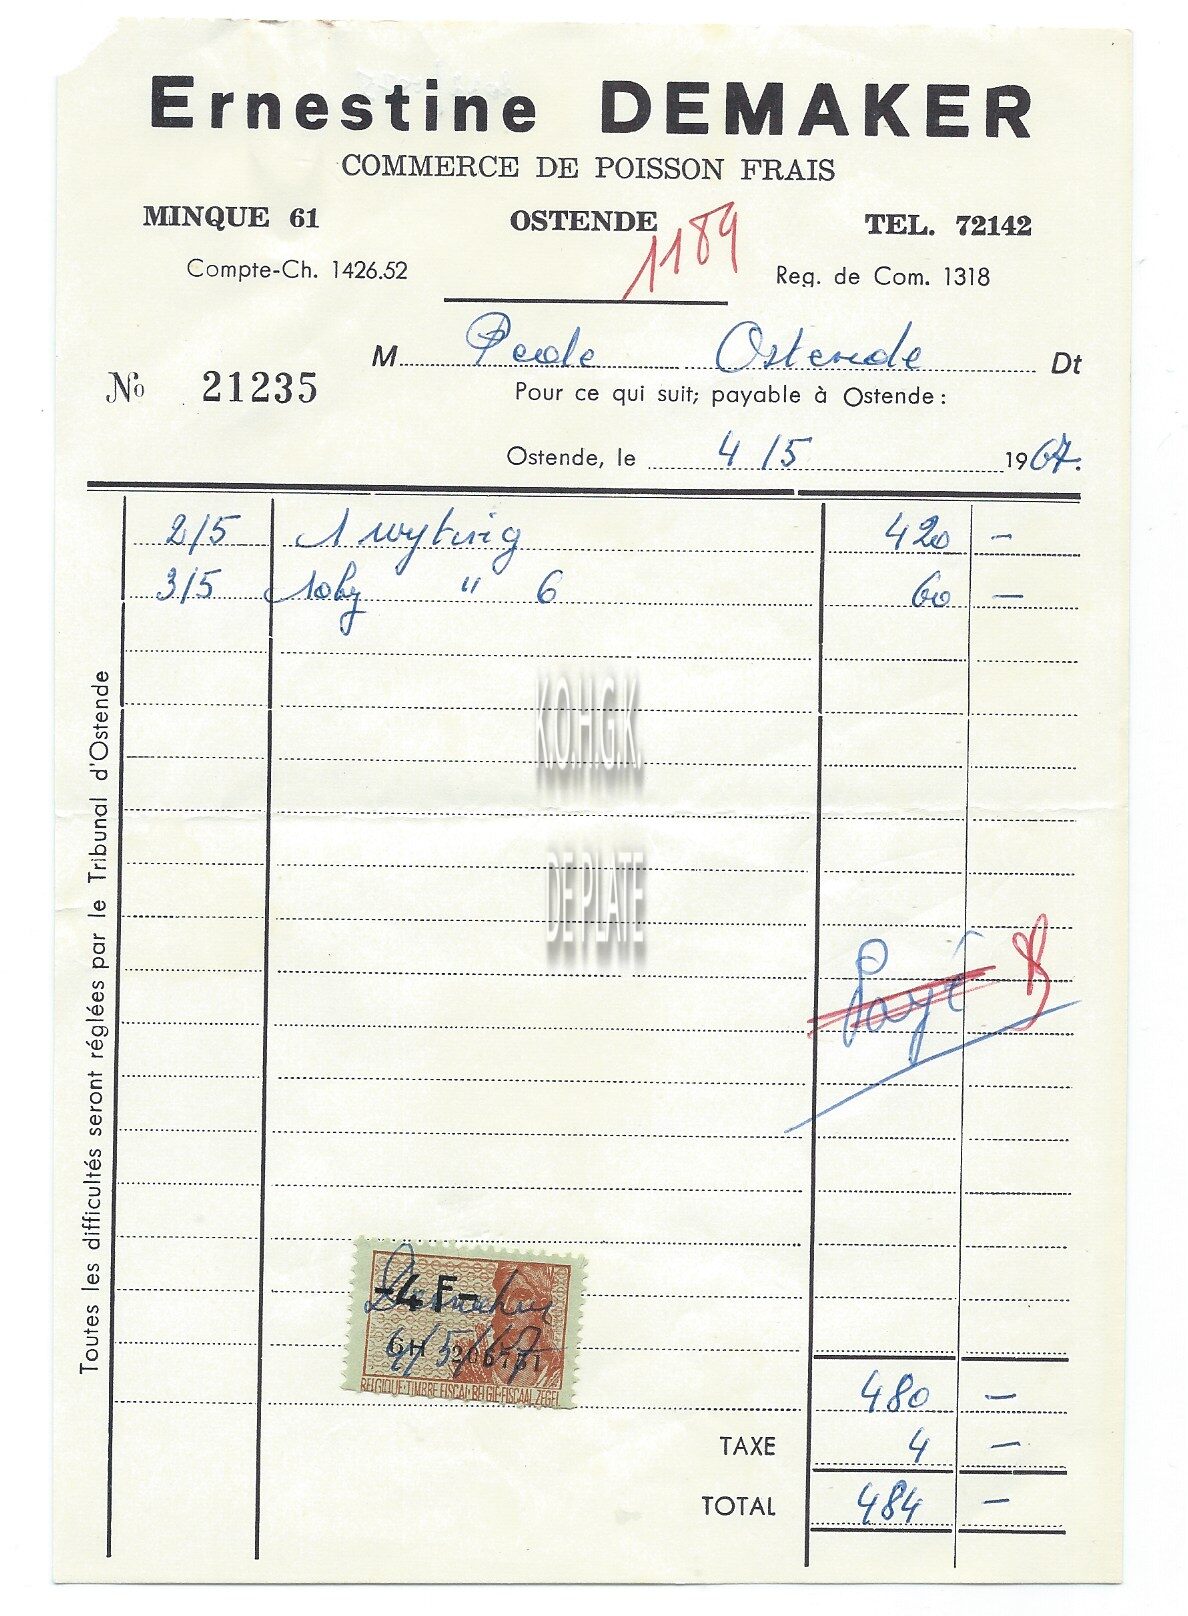 Ernestine DEMAKER
COMMERCE DE POISSON FRAIS
MINQUE 61 OSTENDE TEL. 72142
1189
Compte-Ch. 1426.52 Reg. de Com. 1318
M Ostende Dt
No 21235
Pour ce qui suit; payable à Ostende:
Ostende, le 4/5 1967.
2/5 1 wyting 420 —
3/5 10kg " 6 60 —
Toutes les difficultés seront réglées par le Tribunal d'Ostende
K.O.H.G.K.
DE PLATE
Payé
-4 F-
4/5/67
BELGIQUE-TIMBRE FISCAL-BELGIE-FISCAAL ZEGEL
480 —
TAXE 4 —
TOTAL 484 —